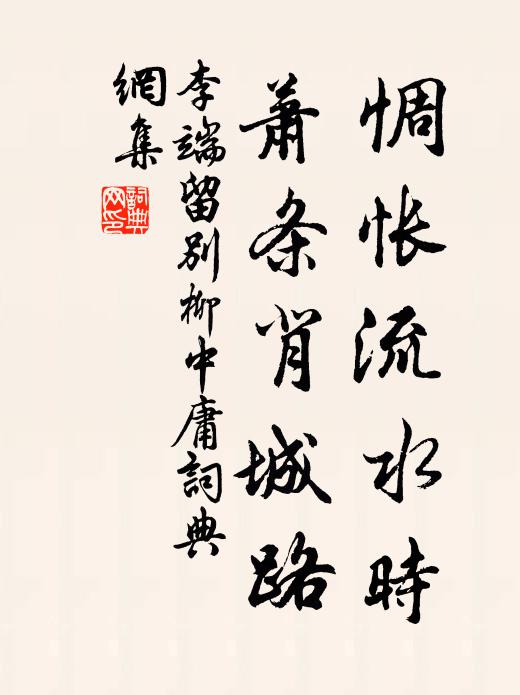 惆怅流水時
蕭条背城路
李端留别柳中庸詞典
網集
詞典網印